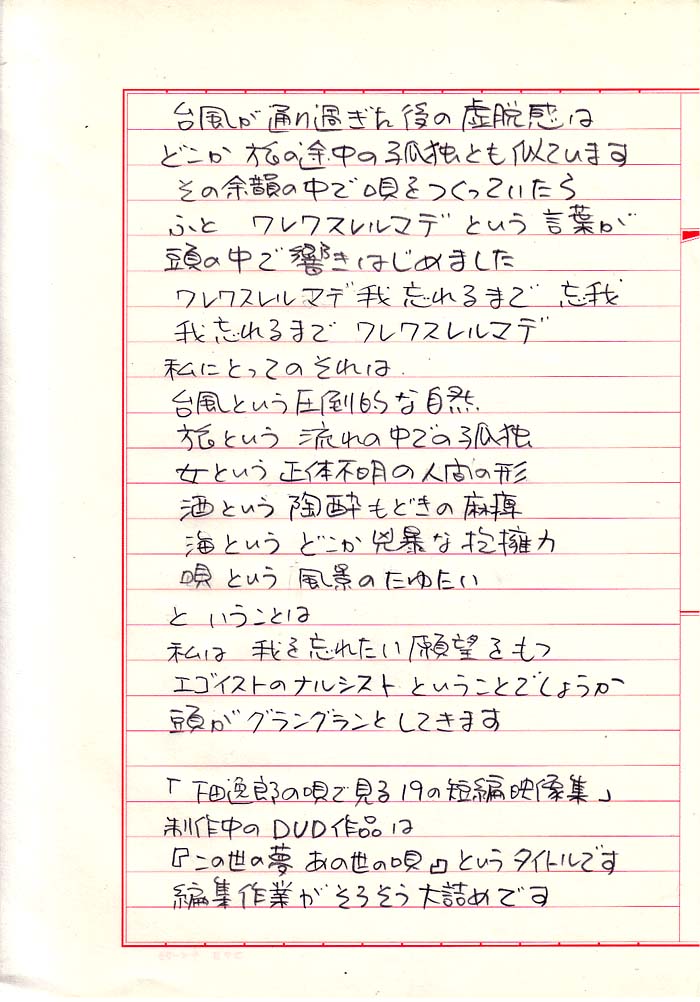 台風が通り過ぎた後の虚脱感は
どこか旅の途中の孤独とも似ています
その余韻の中で唄をつくっていたら
ふと ワレワスレルマデ という言葉が
頭の中で響きはじめました
ワレワスレルマデ 我忘れるまで 忘我
我忘れるまで ワレワスレルマデ
私にとってのそれは
台風という圧倒的な自然
旅という 流れの中での孤独
女という 正体不明の人間の形
酒という 陶酔もどきの麻痺
海という どこか兇暴な抱擁力
唄という 風景のたゆたい
と いうことは
私は 我を忘れたい願望をもつ
エゴイストのナルシスト ということでしょうか
頭がグラングランとしてきます
「下田逸郎の唄で見る19の短編映像集」
制作中のDVD作品は
『この世の夢 あの世の唄』というタイトルです
編集作業がそろそろ大詰めです